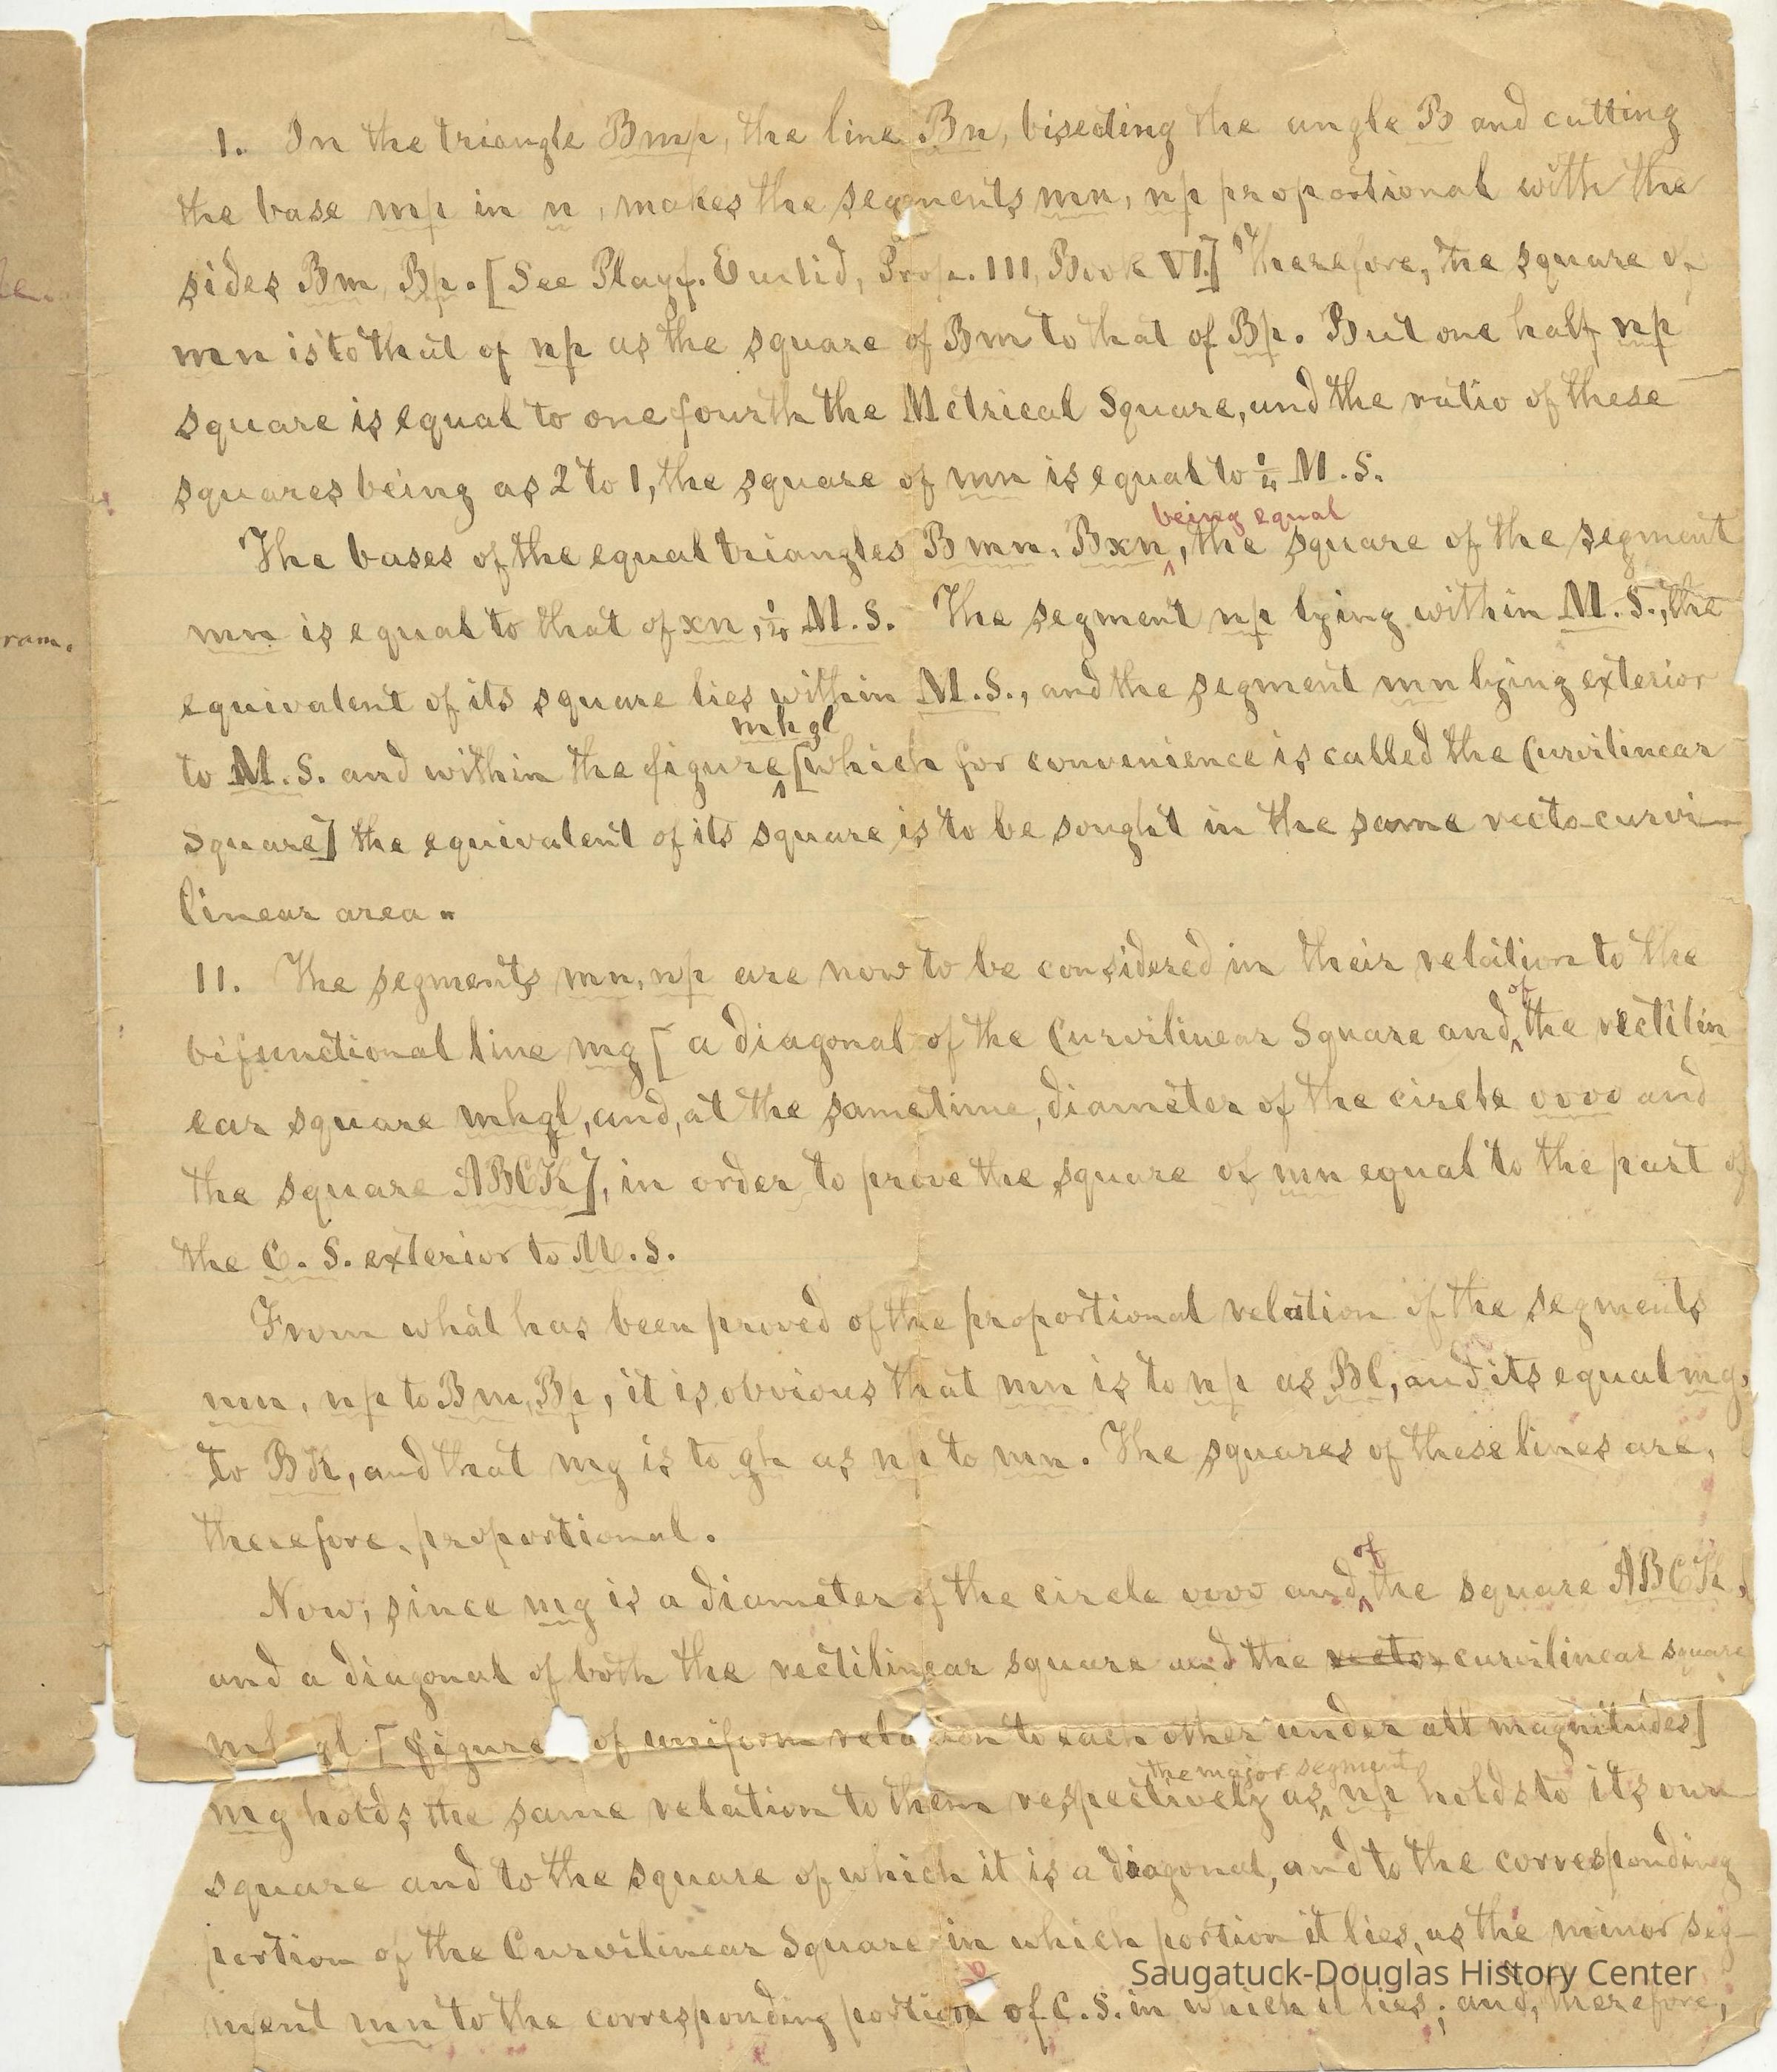 1. In the triangle Bmp, the line Bn, bisecting the angle B and cutting
the base mp in n, makes the segments mn, np proportional with the
sides Bm, Bp. [See Playf. Euclid, Prop. III, Book VI.] Therefore, the square of
le.
mn is to that of np as the square of Bm to that of Bp. But one half np
square is equal to one fourth the Metrical Square, and the ratio of these
squares being as 2 to 1, the square of mn is equal to ¼ M.S.
being equal
The bases of the equal triangles Bmn, Bxn, the square of the segment
mn is equal to that of xn, ¼ M.S. The segment np lying within M.S., the
ram.
equivalent of its square lies within M.S., and the segment mn lying exterior
mhgl
to M.S. and within the figure [which for convenience is called the Curvilinear
Square] the equivalent of its square is to be sought in the same recto-curvi-
linear area.
11. The segments mn, np are now to be considered in their relation to the
of
bifunctional line mg [a diagonal of the Curvilinear Square and the rectilin
ear square mhgl, and, at the sametime, diameter of the circle vvvv and
the square ABCK], in order to prove the square of mn equal to the part of
the C.S. exterior to M.S.
From what has been proved of the proportional relation of the segments
mn, np to Bm, Bp, it is obvious that mn is to np as Bl, and its equal mg,
to BK, and that mg is to gh as np to mn. The squares of these lines are,
therefore, proportional.
of
Now, since mg is a diameter of the circle vvvv and the square ABCK,
and a diagonal of both the rectilinear square and the recto-curvilinear square
gl [figure of uniform relation to each other under all magnitudes]
the major segment
mg holds the same relation to them respectively as np holds to its own
square and to the square of which it is a diagonal, and to the corresponding
portion of the Curvilinear Square in which portion it lies, as the minor seg-
ment mn to the corresponding portion of C.S. in which it lies; and, therefore,
Saugatuck-Douglas History Center